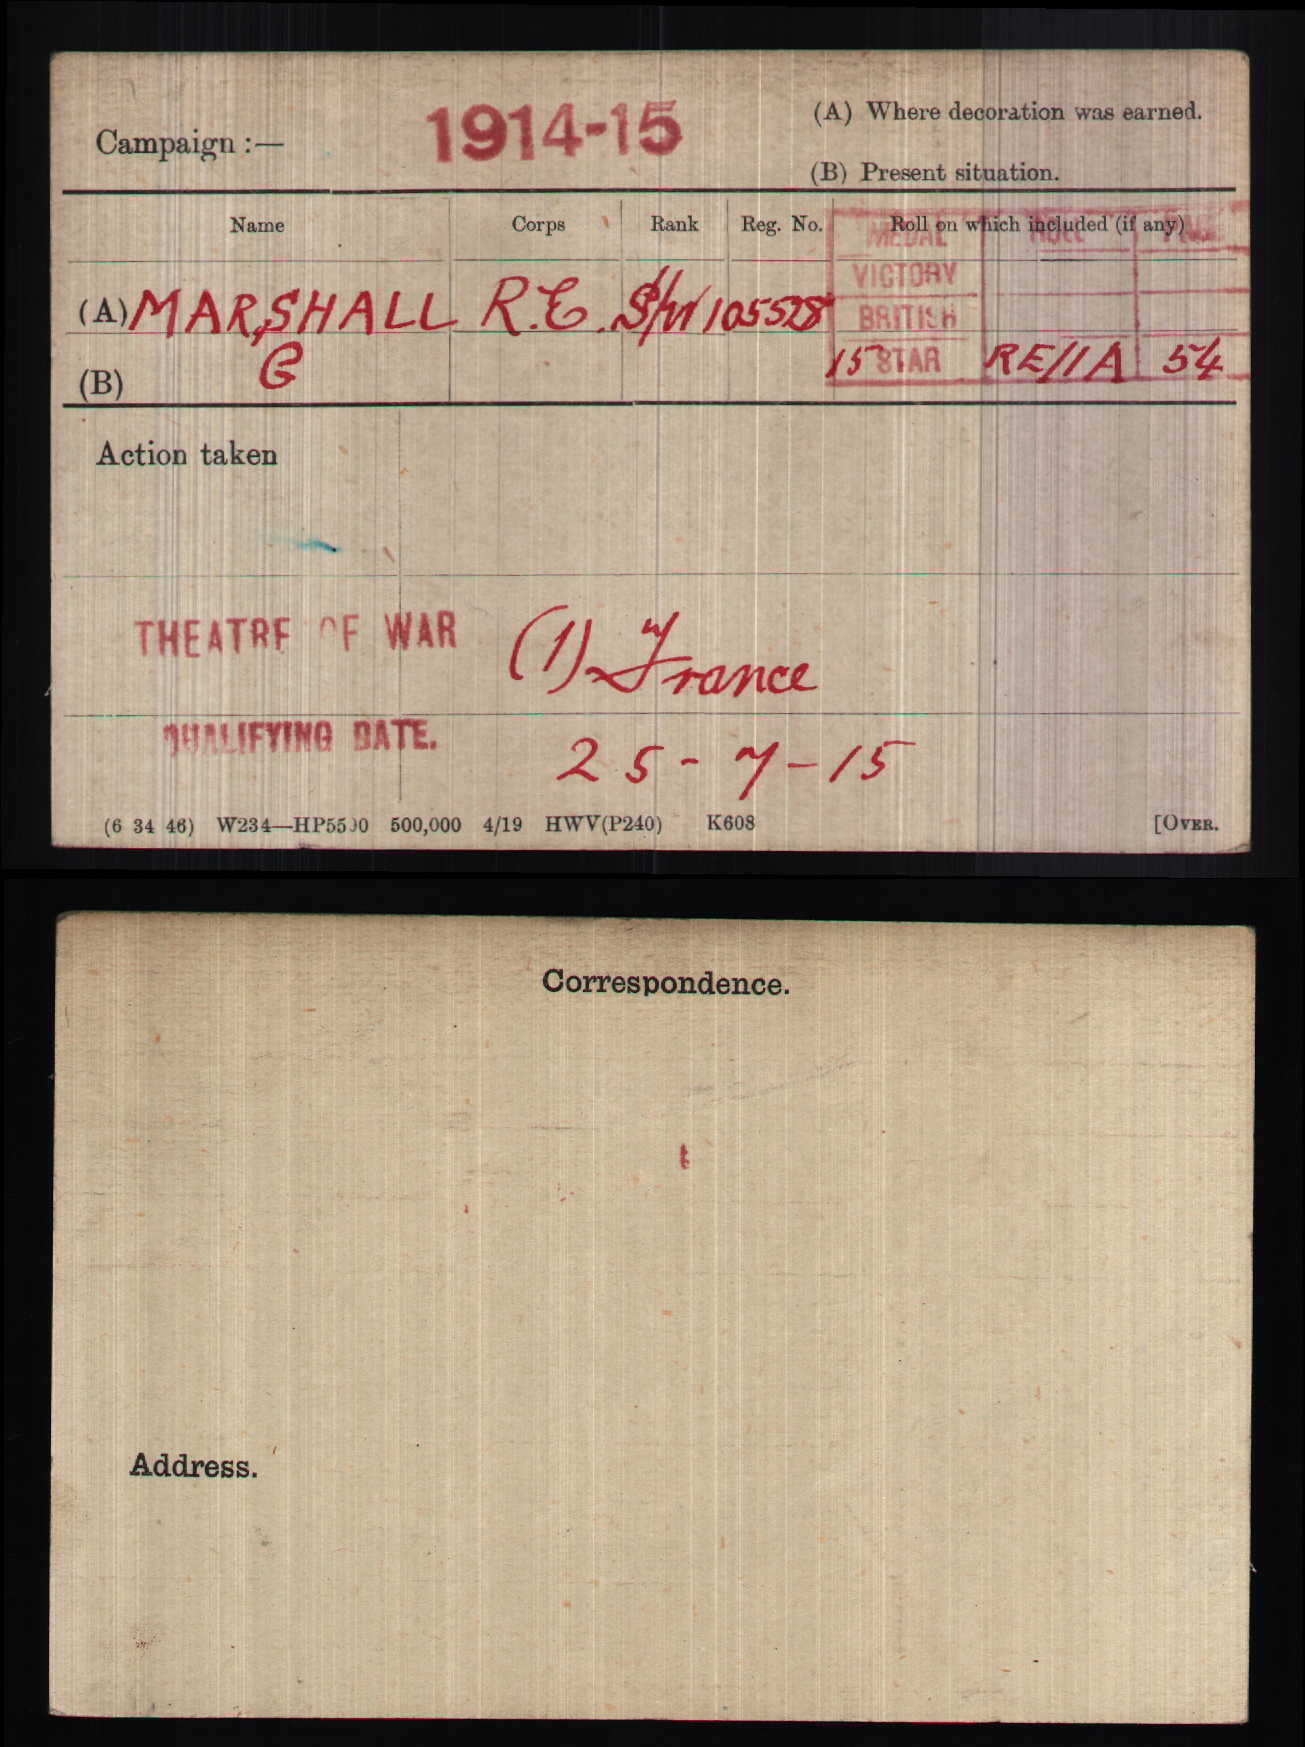 Campaign :— 1914-15 (A) Where decoration was earned.
(B) Present situation.
Name Corps Rank Reg. No. Roll on which included (if any)
MEDAL ROLL PAGE
VICTORY
(A) MARSHALL R.E. Spr 105528 BRITISH
(B) G 15 STAR RE/1A 54
Action taken
THEATRE OF WAR (1) France
QUALIFYING DATE. 25-7-15
(6 34 46) W234—HP5590 500,000 4/19 HWV(P240) K608 [OVER.
Correspondence.
Address.